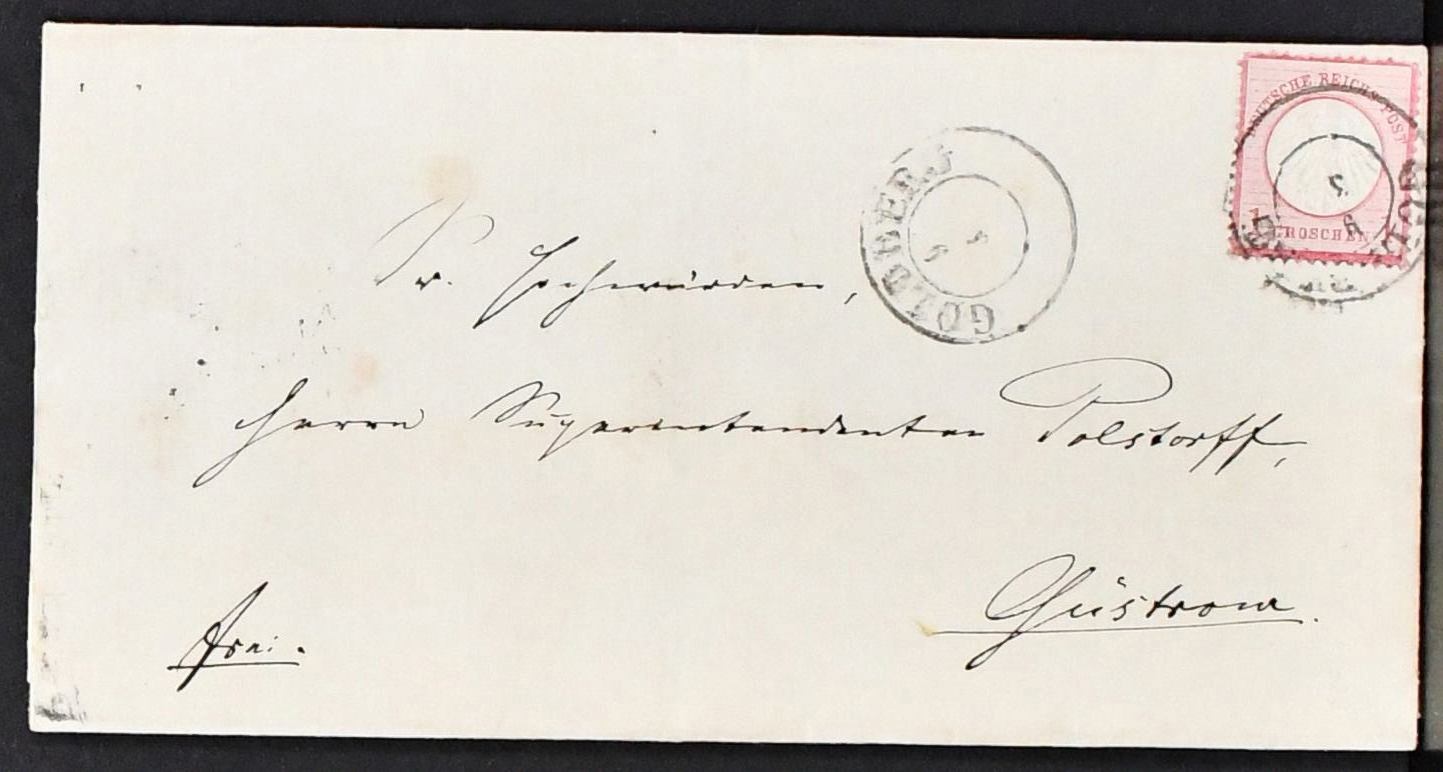 DEUTSCHE REICHS-POST
1 GROSCHEN
GOLDBERG
Sr. Hochwürden,
Herrn Superintendenten Polstorff,
Güstrow.
frei.